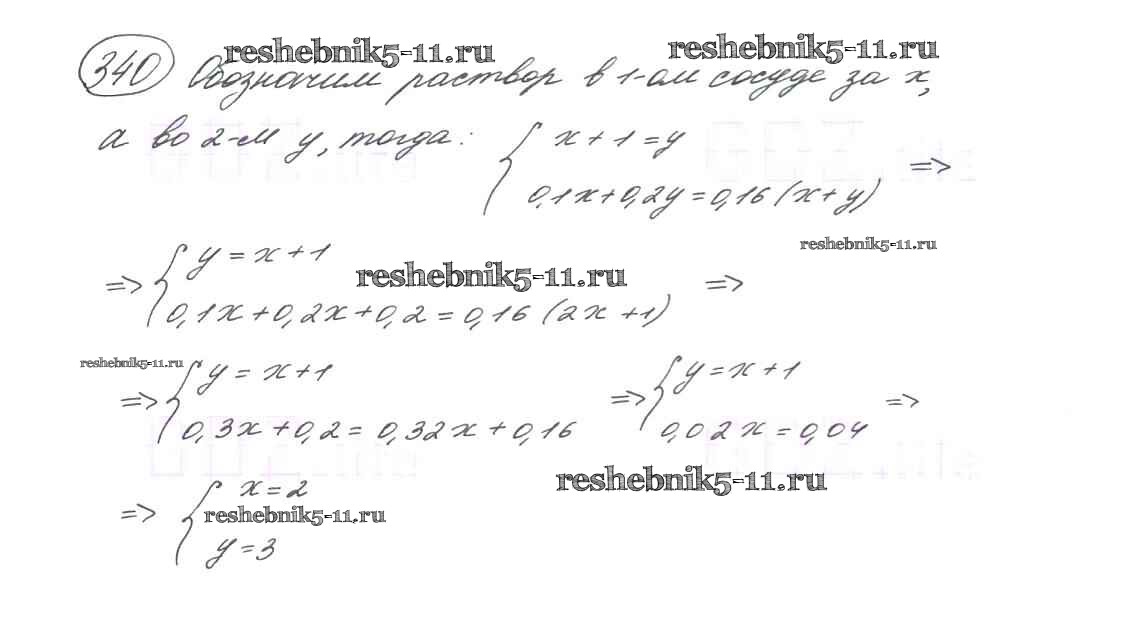 reshebnik5-11.ru reshebnik5-11.ru
340 Обозначим раствор в 1-ом сосуде за x,
а во 2-м y, тогда: { x + 1 = y
0,1x + 0,2y = 0,16 (x + y) =>
reshebnik5-11.ru
=> { y = x + 1
reshebnik5-11.ru
0,1x + 0,2x + 0,2 = 0,16 (2x + 1) =>
reshebnik5-11.ru
=> { y = x + 1 => { y = x + 1
0,3x + 0,2 = 0,32x + 0,16 0,02x = 0,04 =>
reshebnik5-11.ru
=> { x = 2
reshebnik5-11.ru
y = 3